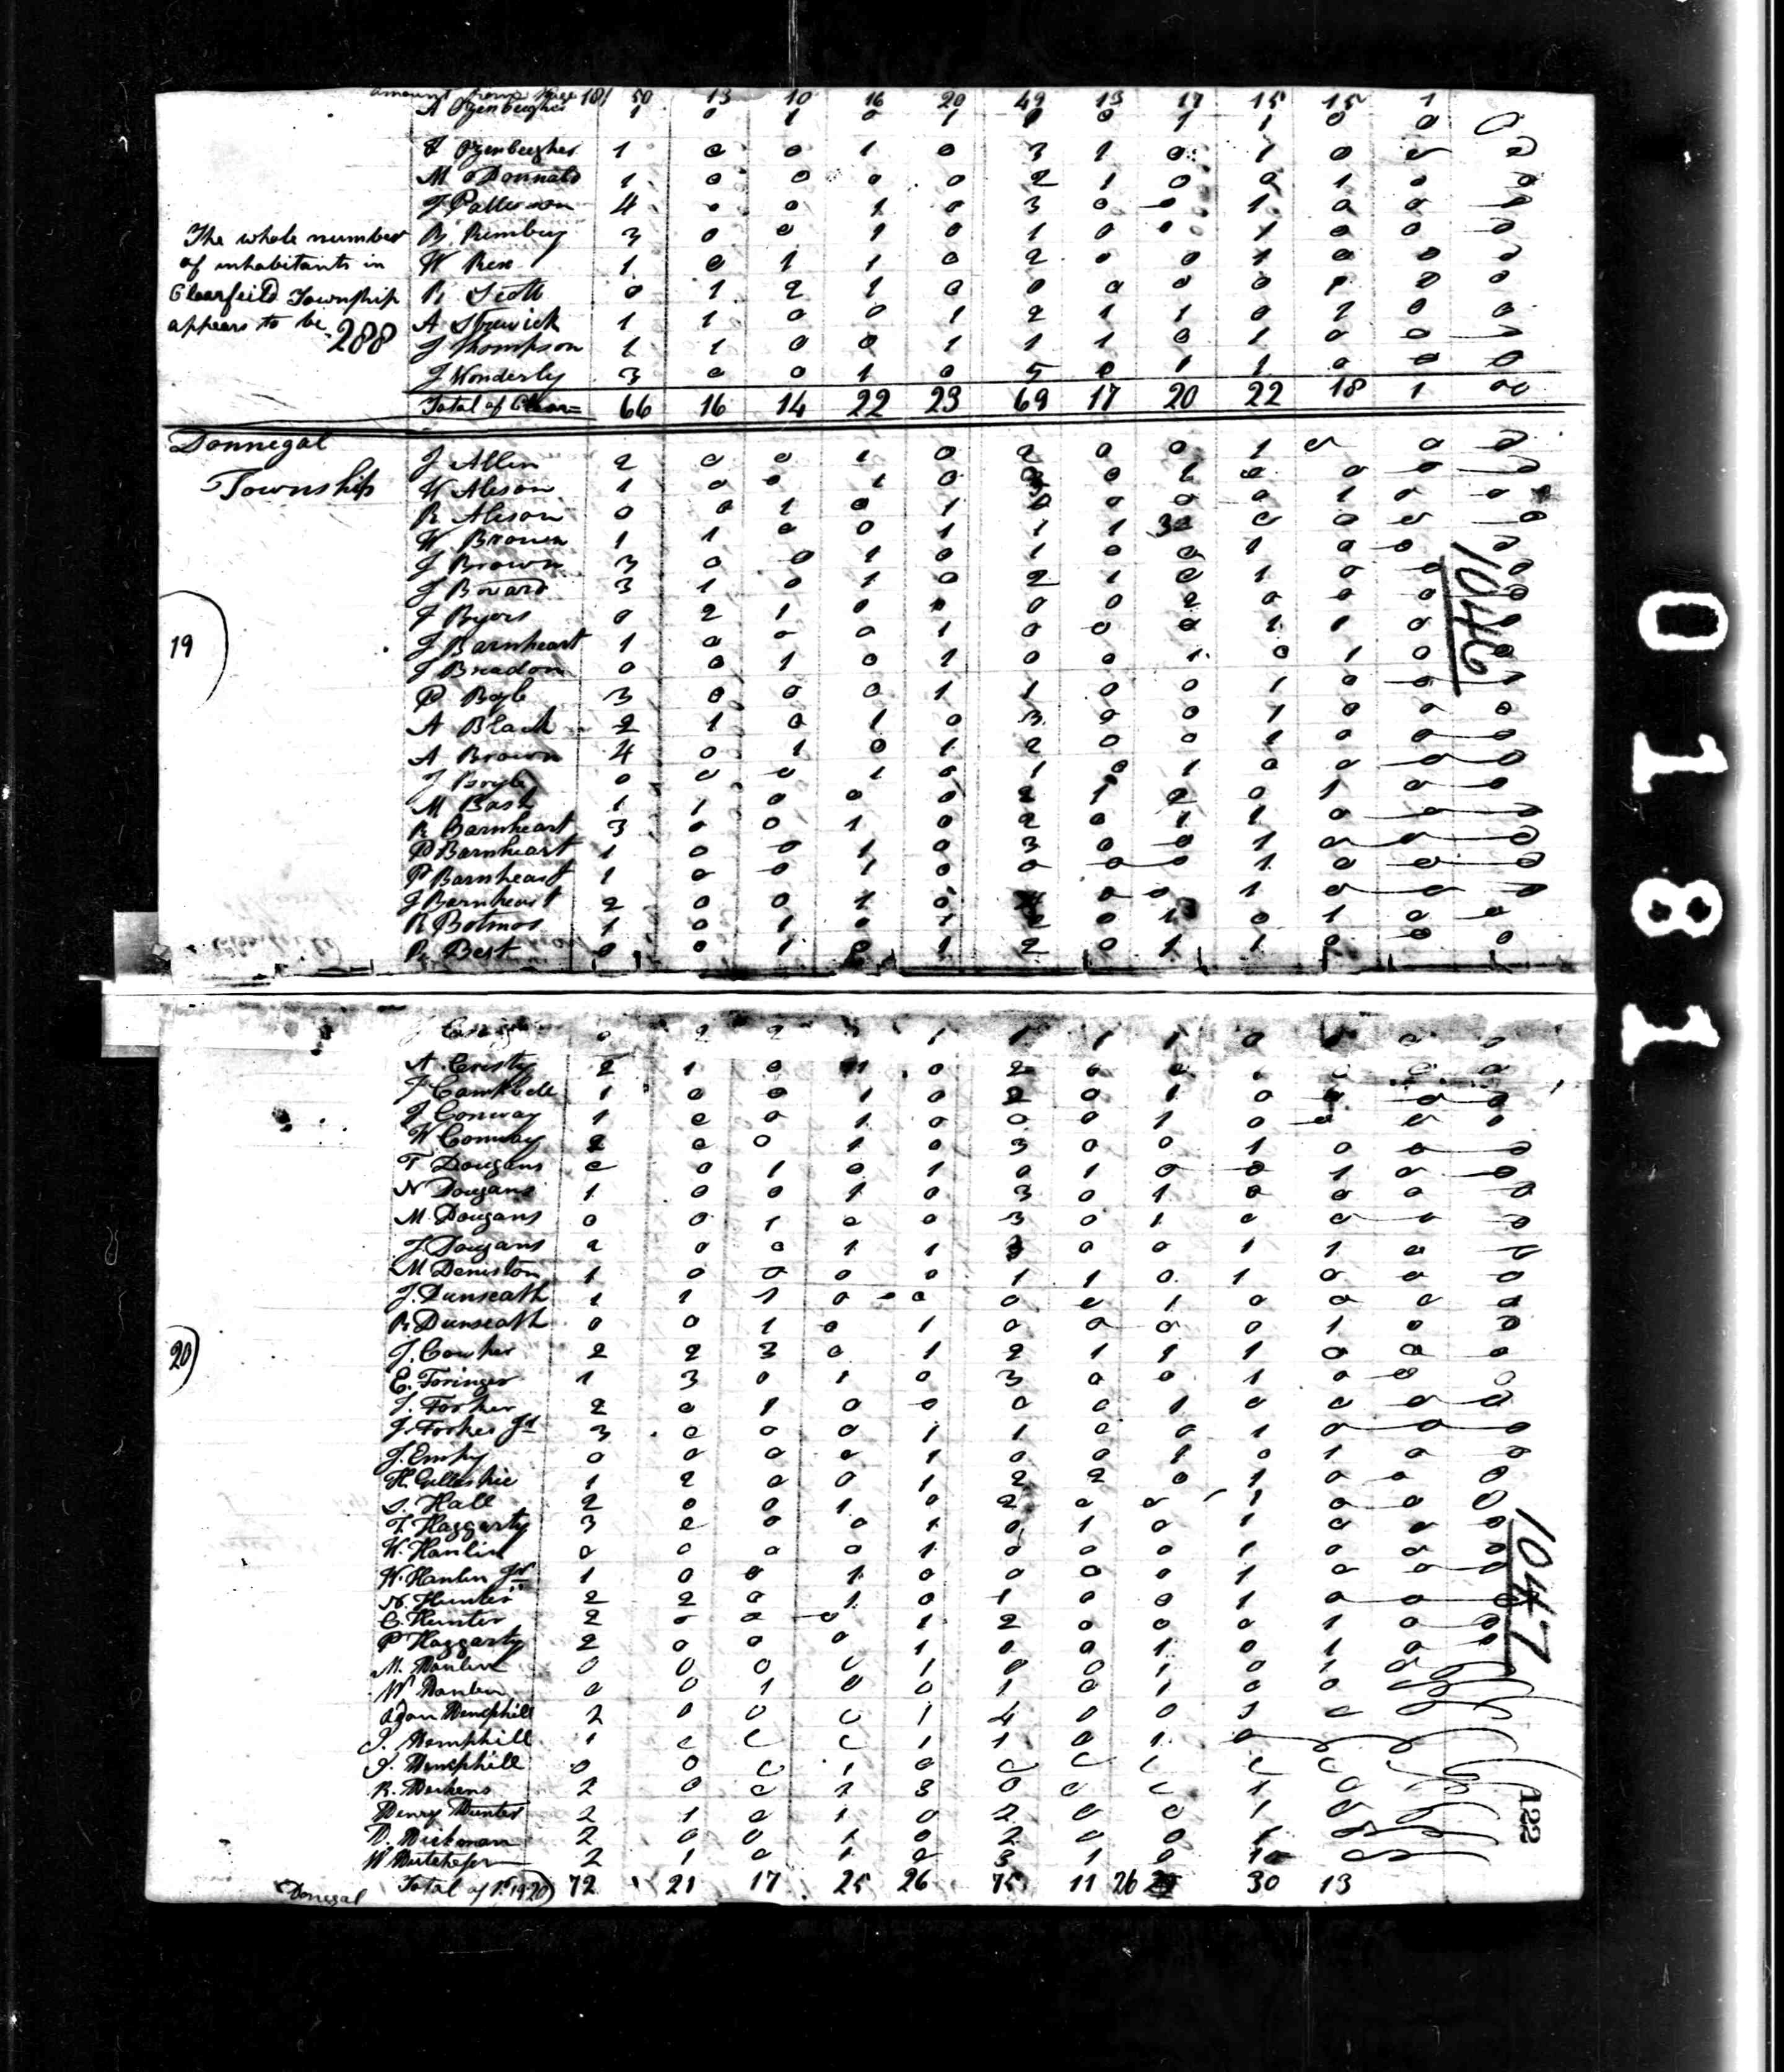 amount from Page 18 50 13 10 16 20 49 13 17 15 15 1
A 1 0 1 0 1 0 1 1 0 0 0
1 0 0 1 0 3 1 0 1 0 0 0
M oDonnald 1 0 0 0 0 2 1 0 0 1 0 0
J Patterson 4 0 0 1 0 3 0 0 1 0 0 0
The whole number
of inhabitants in
Clearfeild Township
appears to be 288
R. 3 0 0 1 0 1 0 0 1 0 0 0
W Rex 1 0 1 1 0 2 0 0 1 0 0 0
R Scott 0 1 2 1 0 0 0 0 0 0 0
A 1 1 0 0 1 2 1 1 0 0 0
J Thompson 1 1 0 0 1 1 1 0 1 0 0 0
J Wonderly 3 0 0 1 0 5 0 1 1 0 0 0
Total of Clear= 66 16 14 22 23 69 17 20 22 18 1 00
Donnegal
Township
J Allen 2 0 0 1 0 2 0 0 1 0 0 0
W Alison 1 0 0 1 0 0 0 0 0 0
R Alison 0 0 1 0 1 0 0 0 0 1 0 0
W Brown 1 1 0 0 1 1 1 0 0 0 0
J Brown 3 0 0 1 0 1 0 0 1 0 0 0
J Bovard 3 1 0 1 0 2 1 0 1 0 0 0
J Byers 0 2 1 0 0 0 2 0 0 0 0
19
J Barnheart 1 0 0 0 1 0 0 0 1 1 0
J Breadon 0 0 1 0 1 0 0 1 0 1 0 0
P Boyle 3 0 0 0 1 1 0 0 1 0 0
A Black 2 1 0 1 0 3 0 0 1 0 0 0
A Brown 4 0 1 0 1 2 0 0 1 0 0 0
J Boyle 0 0 0 1 0 1 0 1 0 0 0 0
M Bash 1 1 0 0 0 2 1 2 0 1 0 0
R Barnheart 3 0 0 1 0 2 0 1 1 0 0 0
P Barnheart 1 0 0 1 0 3 0 0 1 0 0 0
P Barnheart 1 0 0 1 0 0 0 0 1 0 0 0
J Barnheart 2 0 0 1 0 0 0 1 0 0 0
R 1 0 1 0 1 2 0 1 0 1 0 0
R. Best 0 0 1 0 1 2 0 1 1 0 0 0
1046
J 0 2 2 1 1 1 1 0 1 0 0
A. Cristy 2 1 0 1 0 2 0 0 0 0 0
J Campbell 1 0 0 1 0 2 0 1 0 0 0
J Conway 1 0 0 1 0 0 0 1 0 0 0 0
W Conway 2 0 0 1 0 3 0 0 1 0 0 0
T Dougans 0 0 1 0 1 0 1 0 0 1 0 0
N Dougans 1 0 0 1 0 3 0 1 0 0 0 0
M. Dougans 0 0 1 0 0 3 0 1 0 0 0 0
J. Dougans 0 0 1 1 0 0 1 1 0
M Deniston 1 0 0 0 0 1 1 0 1 0 0 0
J. Dunseath 1 1 1 0 0 0 0 1 0 0 0 0
R Dunseath 0 0 1 0 1 0 0 0 0 1 0 0
20
J. Cowher 2 2 3 0 1 2 1 1 1 0 0 0
E. Foringer 1 3 0 1 0 3 0 0 1 0 0 0
J. Forker 2 0 1 0 0 0 0 1 0 0 0 0
J. Forker Jr 3 0 0 0 1 1 0 0 1 0 0 0
J. 0 0 0 0 1 0 0 1 0 1 0 0
H. Gilleskie 1 2 0 0 1 2 2 0 1 0 0 0
S. Hall 2 0 0 1 0 2 0 0 1 0 0 0
T. Haggerty 3 0 0 0 1 0 1 0 1 0 0 0
W. Hanlin 0 0 0 0 1 0 0 0 1 0 0 0
W. Hanlin Jr 1 0 0 1 0 0 0 0 1 0 0 0
N. Hunter 2 2 0 1 0 1 0 0 1 0 0 0
C. Hunter 2 0 0 0 1 2 0 0 0 1 0 0
P Haggarty 2 0 0 0 1 0 0 1 0 1 0 0
M. Hanlin 0 0 0 0 1 0 0 1 0 1 0
W Hanlin 0 0 1 0 0 1 0 1 0 0
Adam Hemphill 2 0 0 0 1 4 0 0 1 0
J. Hemphill 1 0 0 0 1 1 0 1 0
J. Hemphill 0 0 0 1 0 0 0 1 0 0
R. 2 0 0 1 3 0 0 0 1 0
Henry Hunter 2 1 0 1 0 2 0 0 1 0
D. Hickman 2 0 0 1 0 2 0 0 1
W 2 1 0 1 0 3 1 0
Donegal Total of P. 19 20 72 21 17 25 26 75 11 26 30 13
1047
122
0181